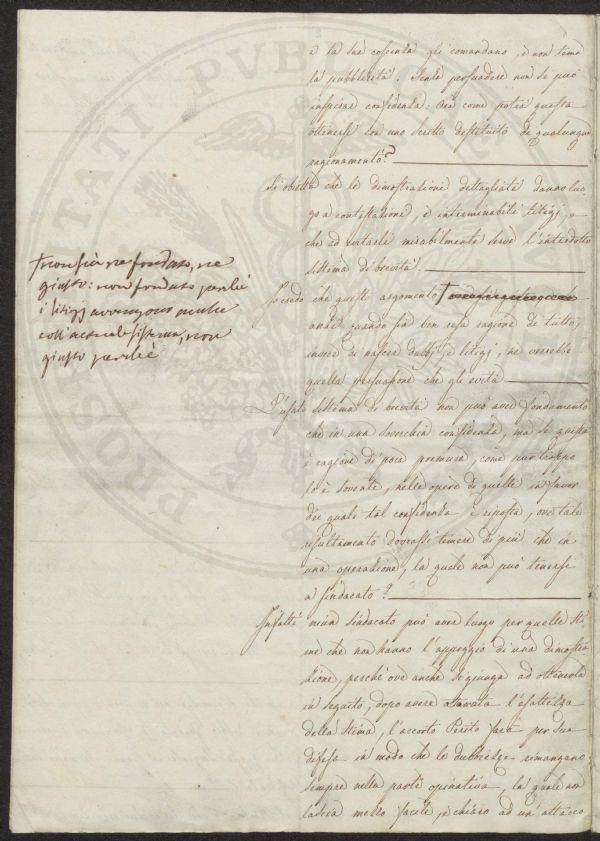 e la sua coscienza gli comandano, e non tema
la pubblicità. Senza persuadere non si può
inspirar confidenza: ora come potrà questa
ottenersi con uno scritto destituito di qualunque
ragionamento?
Si obietta che le dimostrazioni dettagliate danno luo
go a contestazione, e interminabili litigj, e
che ad evitarle mirabilmente serve l'introdotto
sistema di brevità!
Io credo che questo argomento
anzi quando sia ben resa ragione di tutto
invece di nascere dubbj e litigj, ne verrebbe
quella persuasione che gli evita
non sia ne fondato, ne
giusto: non fondato perchè
i litigj avvengono anche
coll'attuale sistema, non
giusto perchè
L'usato sistema di brevità non può aver fondamento
che in una soverchia confidenza, ma se questa
è cagione di poca premura, come pur troppo
lo è sovente, nelle opere di quelli in favor
dei quali tal confidenza è riposta, ove tale
resultamento dovrassi temere di più che in
una operazione, la quale non può tenersi
a sindacato?
Infatti niun sindacato può aver luogo per quelle Sti
me che non hanno l'appoggio di una dimostra
zione, perchè ove anche si giunga ad ottenerla
in seguito, dopo avere l'esattezza
della Stima, l'accorto Perito farà per sua
difesa in modo che le dubbiezze rimangano
sempre nella parte opinativa, la quale non
lascia mezzo facile, e chiaro ad un attacco
PUBLIC